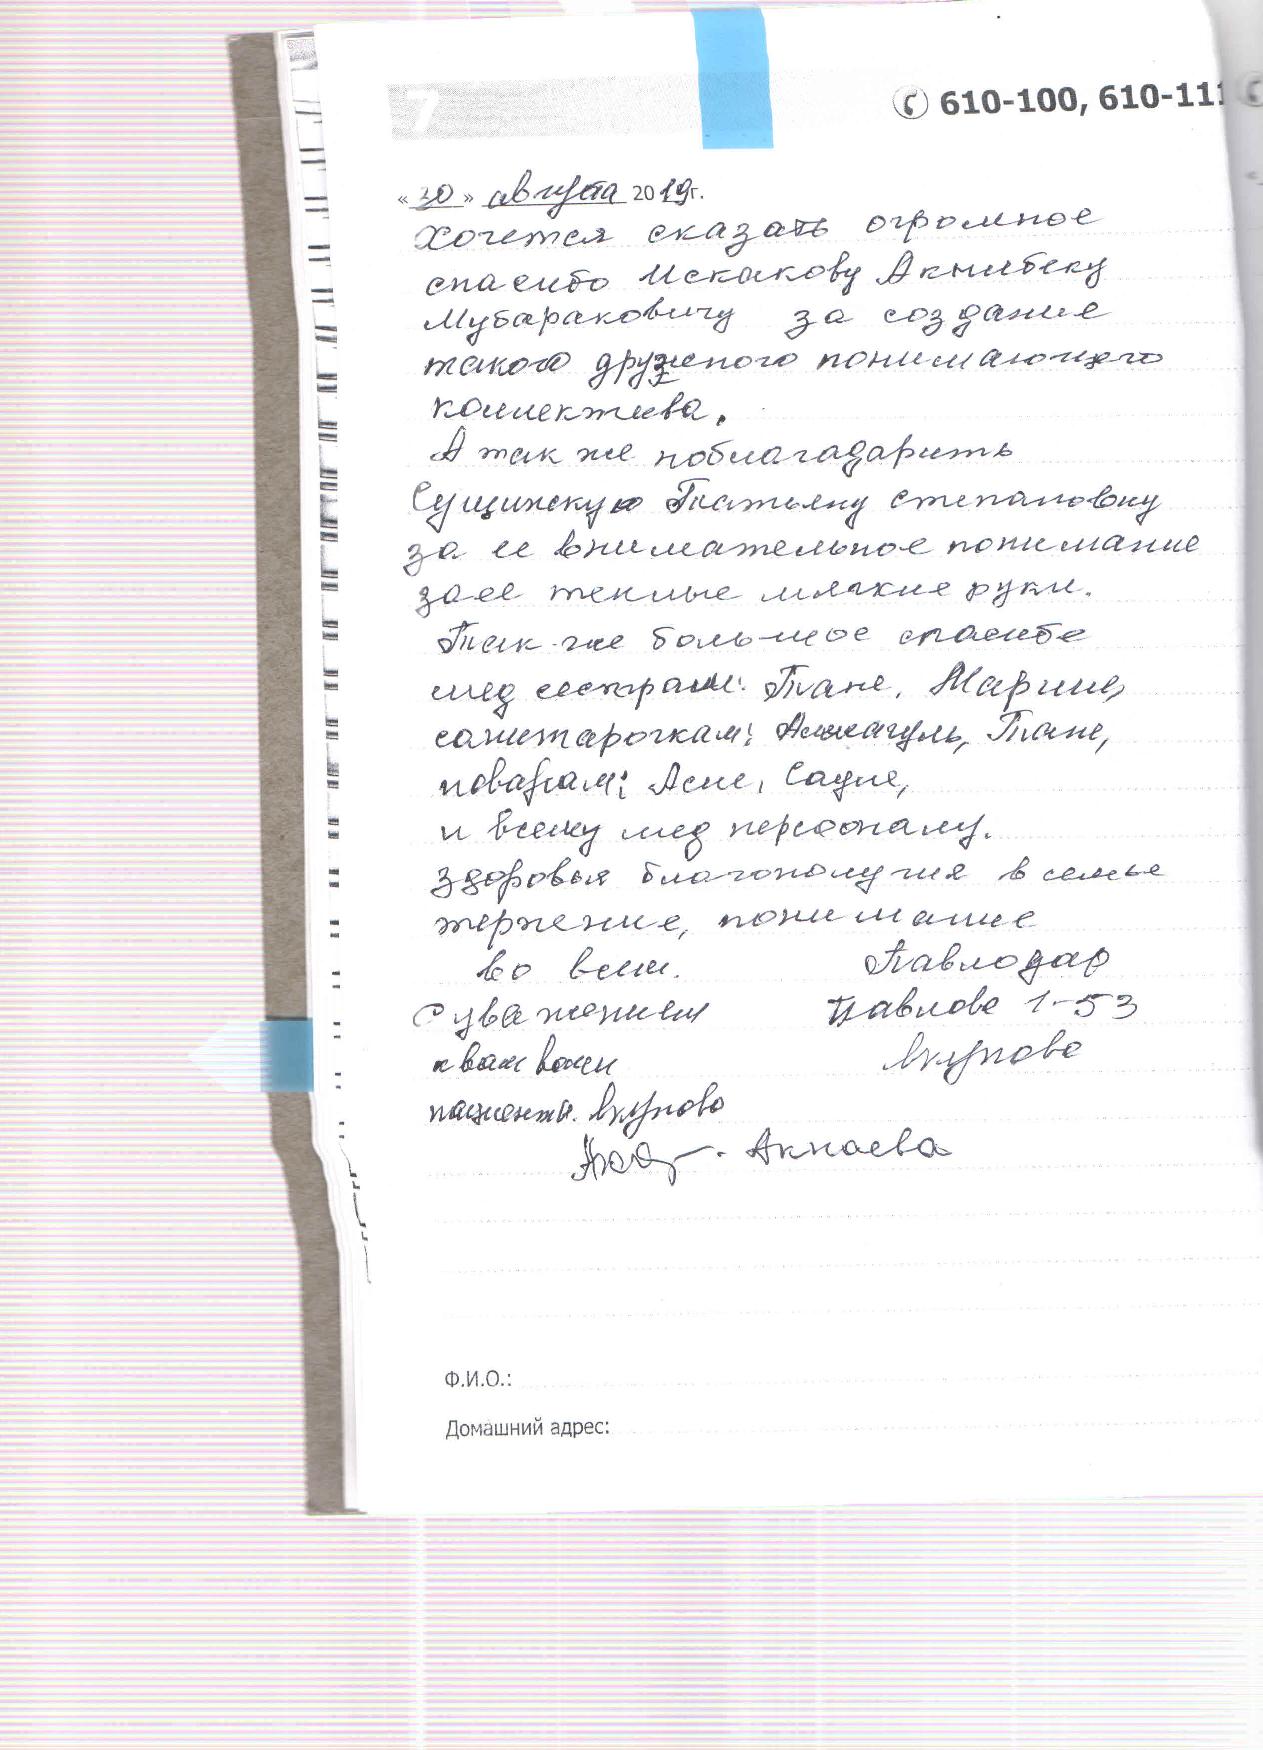 7
610-100, 610-111
«30» августа 2019г.
Хочется сказать огромное
спасибо Искакову Акылбеку
Мубараковичу за создание
такого дружного понимающего
коллектива.
А так же поблагадарить
Сущинскую Татьяну степановну
за ее внимательное понимание
за ее теплые мягкие руки.
Так же большое спасибо
мед сестрам: Тане, Марине,
санитарочкам: Тане,
поварам: Асие, Сауле,
и всему мед персоналу.
Здоровья благополучия в семье
терпение, понимание
во всем. Павлодар
С уважением Павлова 1-53
к вам ваши
пациенты.
Акпаева
Ф.И.О.:
Домашний адрес: